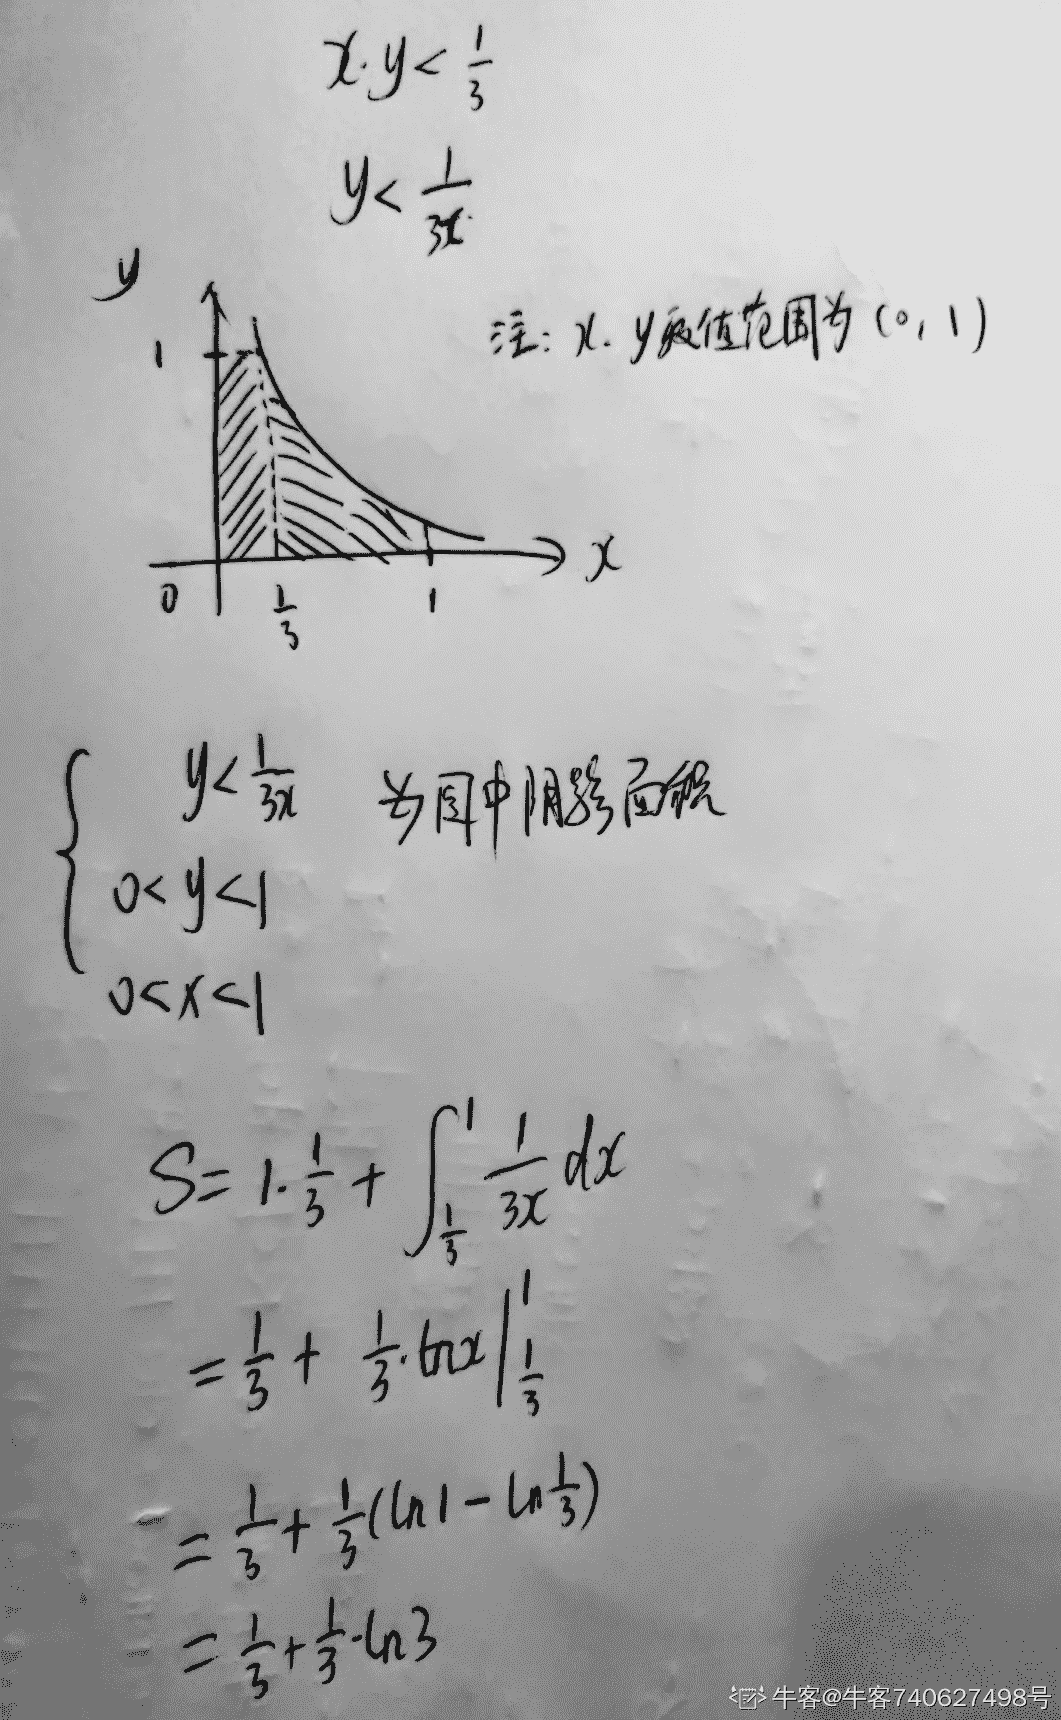 x·y<1/3
y<1/3x
y
1
注: x. y取值范围为(0, 1)
x
0
1/3
1
y<1/3x 为图中阴影面积
0<y<1
0<x<1
S=1·1/3+∫_{1/3}^{1} 1/3x dx
=1/3+ 1/3·lnx|_{1/3}^{1}
=1/3+1/3(ln1-ln1/3)
=1/3+1/3·ln3
牛客@牛客740627498号